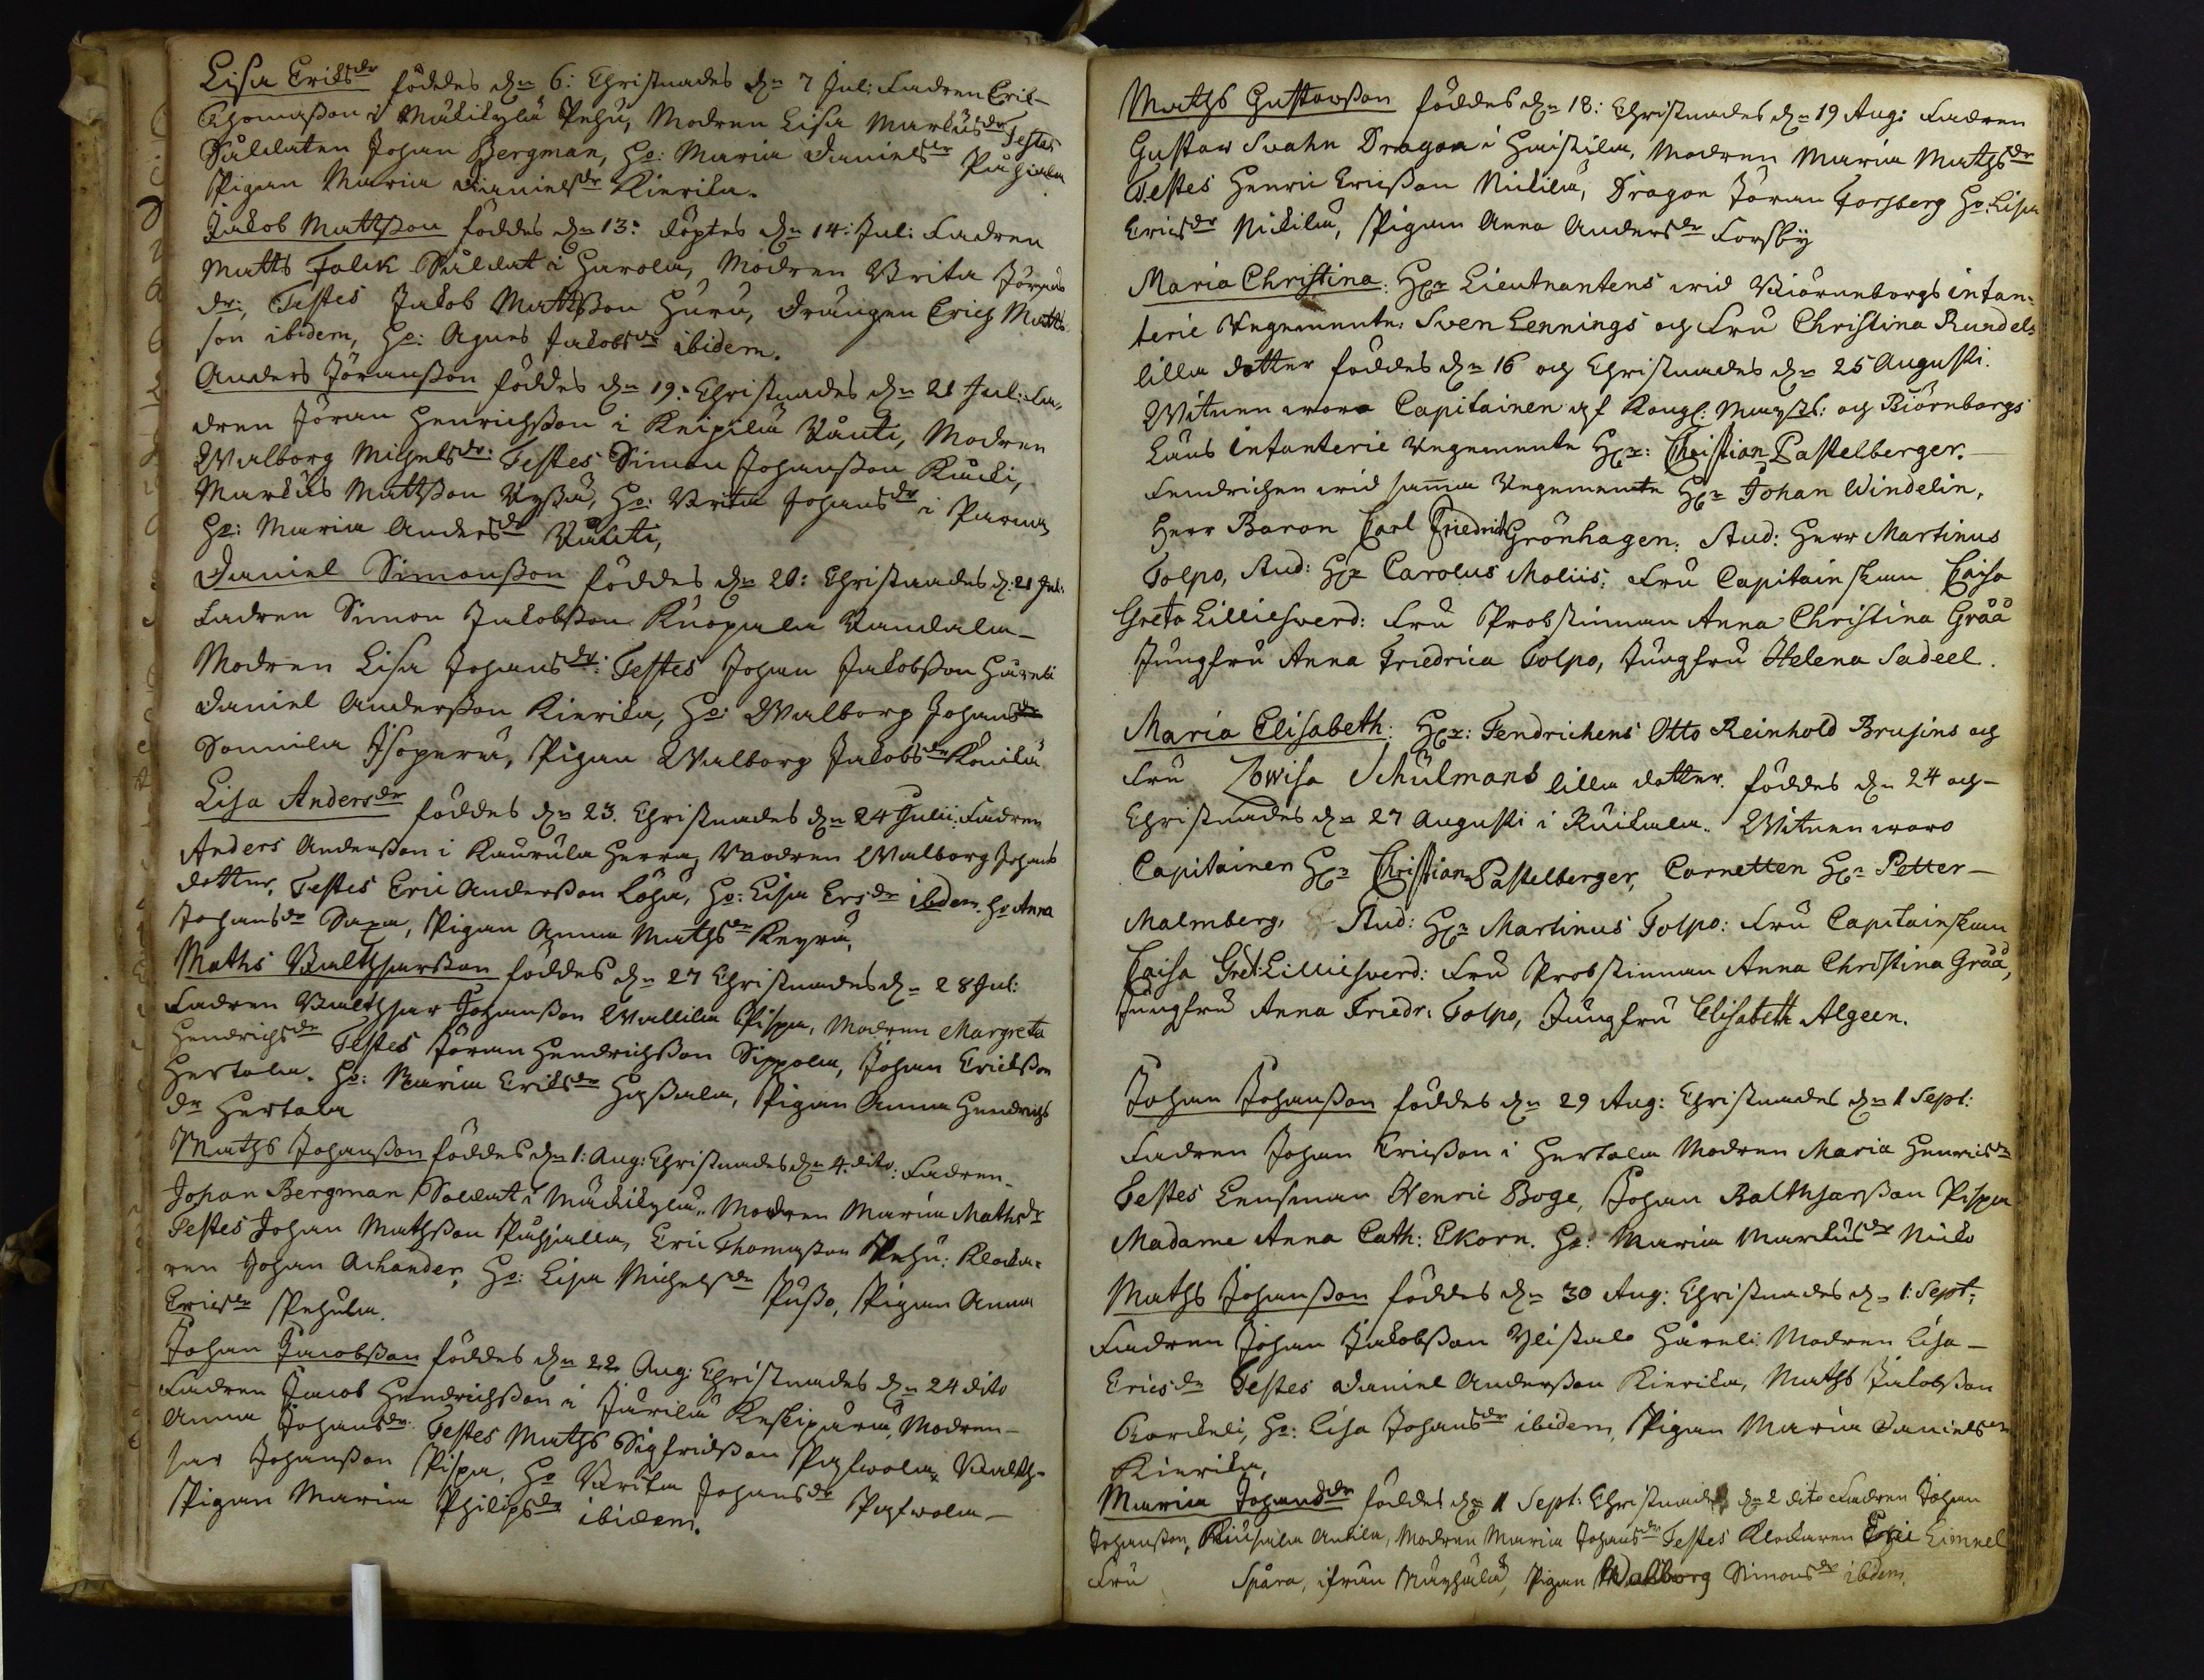 Lisa Eriksdr föddes dn 6: Christnades dn 7 Jul: Fadren Eric
Thomasson i Mälikylä Pehu, Modren Lisa Markusdr Testes
Saldaten Johan Bergman, Ho: Maria Danielsdr Puhjala
Pigan Maria Danielsdr Kierila.
Jakob Mattsson föddes dn 13: döptes dn 14: Jul: Fadren
Matts Falck Saldat i Harola, Modren Brita Jörans
dr: Testes Jakob Mattsson Huru, Drängen Erich Matts
son ibidem, Ho: Agnes Jakobsdr ibidem.
Anders Jöransson föddes dn 19: Christnades dn 21 Jul: Fa-
dren Jöran Henrichsson i Keipilä Vänti, Modren
Walborg Michelsdr: Testes Simon Johansson Kauki,
Markus Mattsson Ryssä, Ho: Brita Johansdr i Parma
Ho: Maria Andersdr Vänti,
Daniel Simonsson föddes dn 20: Christnades d: 21 Jul:
Fadren Simon Jakobsson Kuopala Vandala
Modren Lisa Johansdr: Testes Johan Jakobsson Hareli
Daniel Andersson Kierika, Ho: Walborg Johansdr
Sonnila Isoperä, Pigan Walborg Jakobsdr Könilä
Lisa Andersdr föddes dn 23. Christnades dn 24 Julii: Fadren
Anders Andersson i Kaurula Herra, Modren Walborg Johans
dotter, Testes Eric Andersson Löhä, Ho: Lisa Ersdr ibidem. Ho Anna
Johansdr Saxa, Pigan Anna Mathsdr Keyrä,
Maths Balthsarsson föddes dn 27 Christnades dn 28 Jul:
Fadren Balthsar Johansson Wallila Pispa, Modren Margreta
Hendrichsdr Testes Jöran Hendrichsson Sippola, Johan Ericksson
Hertola. Ho: Maria Eriksdr Hassala, Pigan Anna Hendrichs
dr Hertola
Maths Johansson föddes dn 1: Aug: Christnades dn 4. dito: Fadren
Johan Bergman Soldat i Mälikylä. Modren Maria Mathsdr
Testes Johan Mathsson Puhjalla, Eric Thomasson Pehu: Klocka-
ren Johan Achander, Ho: Lisa Michelsdr Pusso, Pigan Anna
Ericsdr Pehula.
Johan Jacobsson föddes dn 22 Aug: Christnades dn 24 dito
Fadren Jacob Hendrichsson i Järilä Keskipärä, Modren
Anna Johansdr. Testes Maths Sigfridsson Pahwola, Balth-
sar Johansson Pispa, Ho Brita Johansdr Pahwola
Pigan Maria Philipsdr ibidem.
Maths Gustavsson föddes dn 18: Christnades dn 19 Aug: Fadren
Gustav Svahn Dragon i Haistila, Modren Maria Mathsdr
Testes Henric Ericsson Nickilä, Dragon Jöran Forsberg Ho: Lisa
Ericsdr Nickilä, Pigan Anna Andersdr Forsby
Maria Christina: Hr Lieutnantens wid Biörneborgs infan-
terie Regemente: Sven Lennings och Fru Christina Rundels
lilla dotter föddes dn 16 och Christnades dn 25 Augusti.
Witnen woro Capitainen af Kongl: Mayst: och Biörnborgs
Läns infanterie Regemente Hr: Christian Pastelberger.
Fendrichen wid samma Regemente Hr Johan Windelin,
Herr Baron Carl Friedrich Grönhagen: Stud: Herr Martinus
Tolpo, Stud: Hr Carolus Moliis: Fru Capitainskan Caisa
Greta Lilliesverd: Fru Probstinnan Anna Christina Gråå
Jungfru Anna Friedrica Tolpo, Jungfru Helena Sadeel.
Maria Elisabeth: Hr: Fendrichens Otto Reinhold Brusins och
Fru Lowisa Schulmans lilla dotter. föddes dn 24 och
Christnades dn 27 Augusti i Ruikala. Witnen woro
Capitainen Hr Christian Pastelberger, Cornetten Hr Petter
Malmberg, Stud: Hr Martinus Tolpo: Fru Capitainskan
Caisa Gret: Lilliesverd: Fru Probstinnan Anna Christina Gråå,
Jungfru Anna Friedr: Tolpo, Jungfru Elisabeth Algeen.
Johan Johansson föddes dn 29 Aug: Christnades dn 1 Sept:
Fadren Johan Ericsson i Hertola Modren Maria Henricsdr
Testes Lensman Henric Boge, Johan Balthsarsson Pispa
Madame Anna Cath: Ekorn. Ho: Maria Markusdr Nicko
Maths Johansson föddes dn 30 Aug: Christnades dn 1: Sept:
Fadren Johan Jakobsson Ylistalo Häreli: Modren Lisa
Ericsdr Testes Daniel Andersson Kierika, Maths Jakobsson
Korckeli, Ho: Lisa Johansdr ibidem, Pigan Maria Danielsdr
Kierika,
Maria Johansdr föddes dn 1 Sept: Christnades dn 2 dito Fadren Johan
Johansson, Kiusala Anttila, Modren Maria Johansdr Testes Klockaren Eric Limnel
Fru Spåra, ifrån Mäyhälä, Pigan Walborg Simonsdr ibidem.